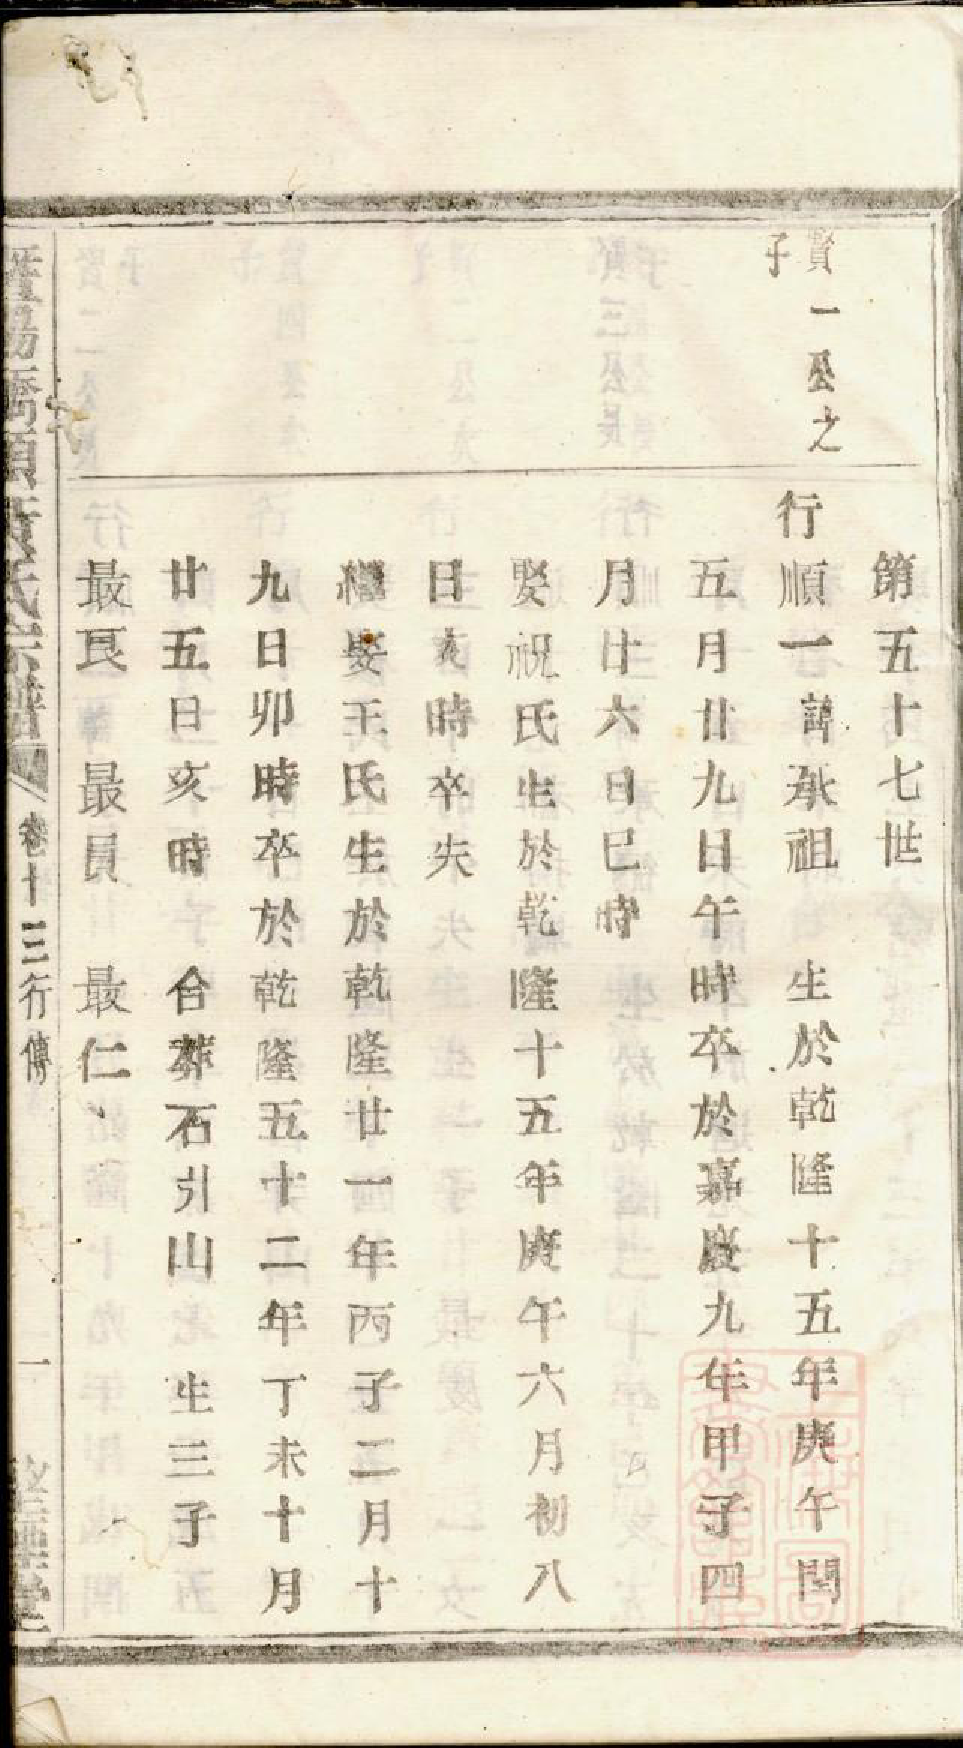 第五十七世
賢一公之
子
行順一諱承祖　生於乾隆十五年庚午閏
五月廿九日午時卒於嘉慶九年甲子四
月廿六日巳時
娶祝氏生於乾隆十五年庚午六月初八
日亥時卒失
繼娶王氏生於乾隆廿一年丙子二月十
九日卯時卒於乾隆五十二年丁未十月
廿五日亥時　合葬石引山　生三子
最良　最員　最仁
卷十三行傳　一